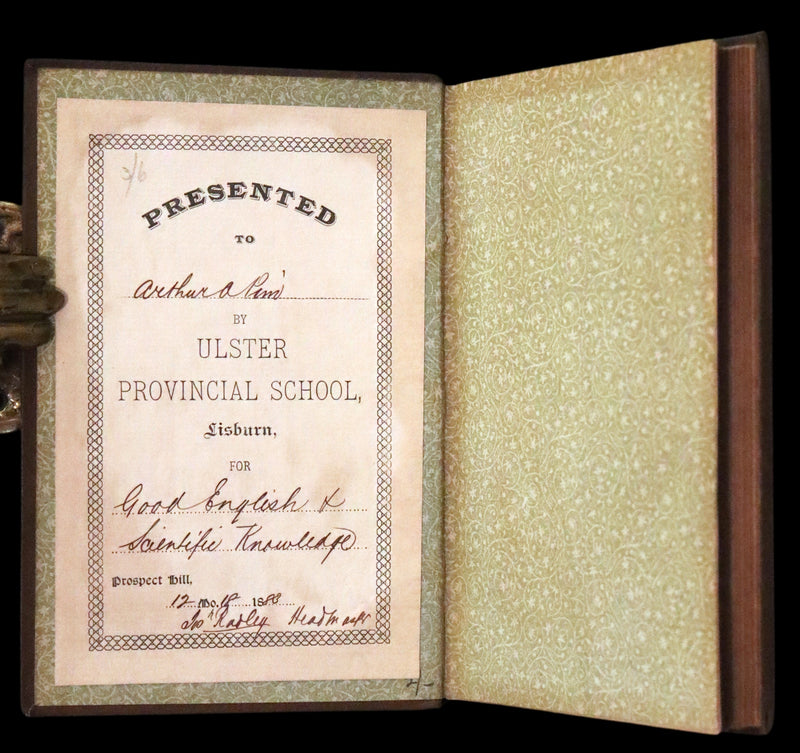 3/6
PRESENTED
TO
Arthur O Pim
BY
ULSTER
PROVINCIAL SCHOOL,
Lisburn,
FOR
Good English &
Scientific Knowledge
Prospect Hill,
12 Mo. 18 1888
Radley Headmaster